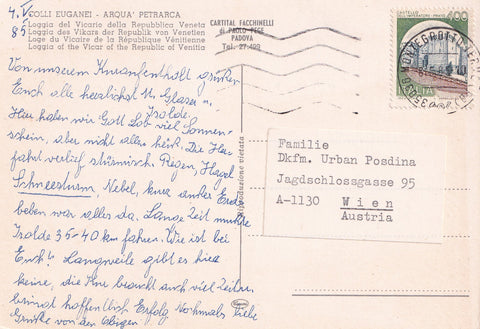 4. V.
85
COLLI EUGANEI - ARQUA' PETRARCA
Loggia del Vicario della Repubblica Veneta
Loggia des Vikars der Republik von Venetien
Loge du Vicaire de la République Vénitienne
Loggia of the Vicar of the Republic of Venitia
CARTITAL FACCHINELLI
di PAOLO FECE
PADOVA
Tel. 27-109
400
ITALIA
Riproduzione vietata
Von unserem Kuraufenthalt grüßen
Euch alle herzlichst M. Glaser u.
Isolde.
Hier haben wir Gott Lob viel Sonnen-
schein, aber nicht allen heiß. Die Her-
fahrt verlief stürmisch. Regen, Hagel
Schneesturm, Nebel, kurz außer Erd-
beben war alles da. Lange Zeit mußte
Isolde 35-40 km fahren. Wie ist bei
Euch? Langweile gibt es hier
keine, die Kur braucht auch viel Zeit u.
bringt hoffentlich Erfolg. Nochmals liebe
Grüße von den Obigen
Familie
Dkfm. Urban Posdina
Jagdschlossgasse 95
A-1130 Wien
Austria